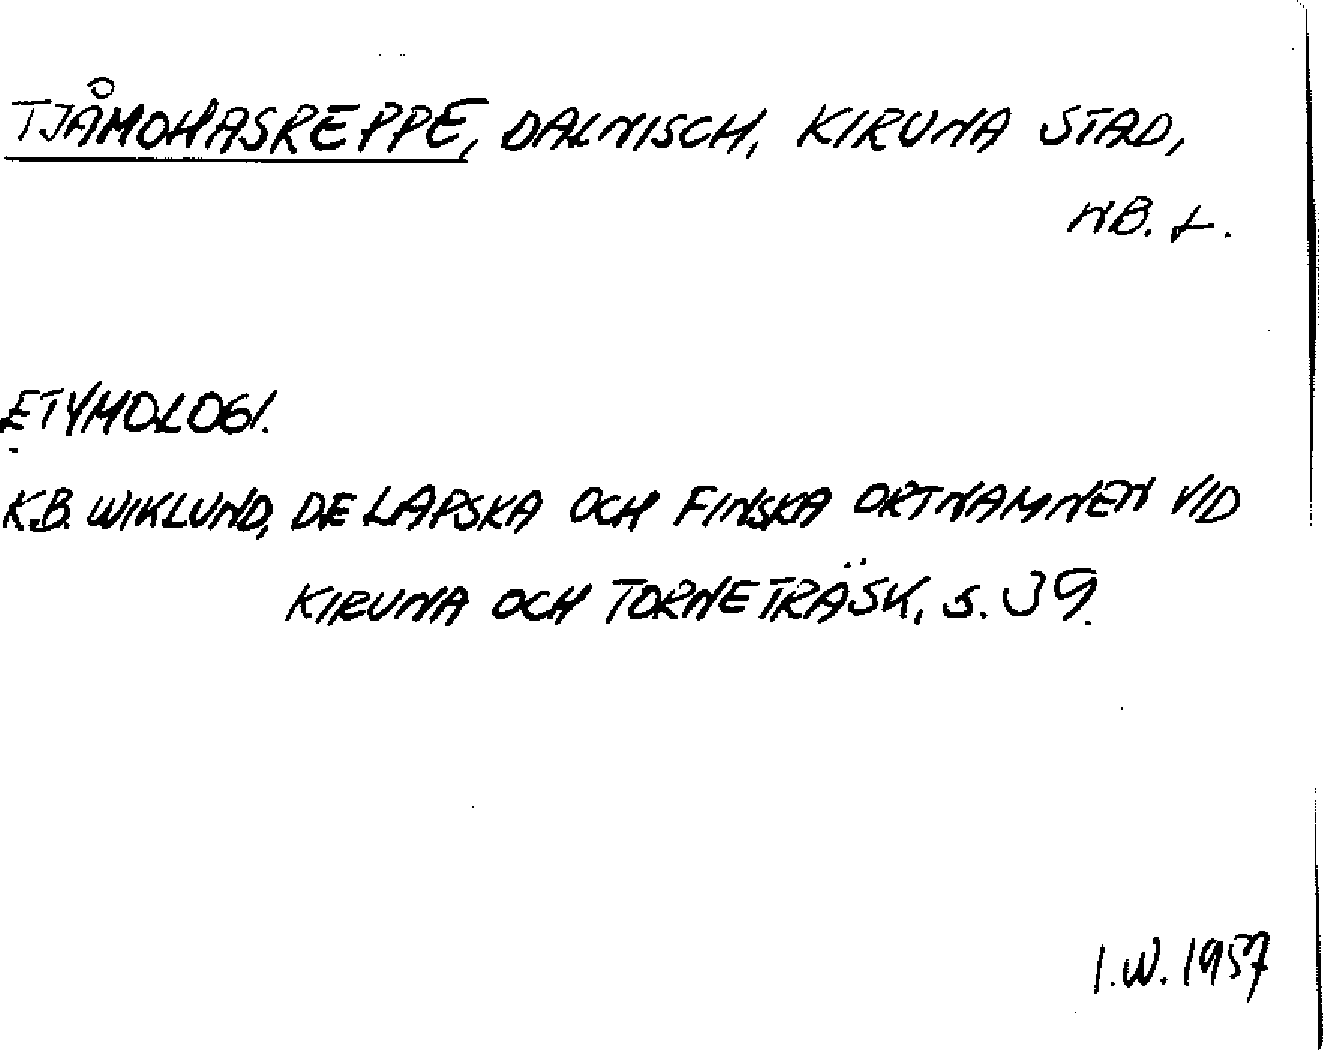 TJÅMOHASREPPE, DALNISCH, KIRUNA STAD,
NB. L.
ETYMOLOGI.
K.B. WIKLUND, DE LAPSKA OCH FINSKA ORTNAMNEN VID
KIRUNA OCH TORNETRÄSK, s. 39.
I.W. 1957